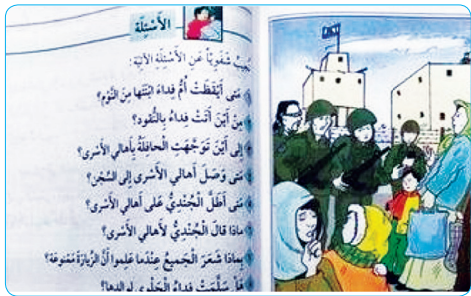 الأَسْئِلَة
نُجيبُ شَفَوِيّاً عَنِ الأَسْئِلَةِ الآتِيَةِ:
مَتى أَيْقَظَتْ أُمُّ فِداءَ ابْنَتَها مِنَ النَّوْمِ؟
مِنْ أَيْنَ أَتَتْ فِداءُ بِالنُّقودِ؟
إِلى أَيْنَ تَوَجَّهَتِ الْحافِلَةُ بِأَهالي الأَسْرى؟
مَتى وَصَلَ أَهالي الأَسْرى إِلى السِّجْنِ؟
مَتى أَطَلَّ الْجُنْدِيُّ عَلى أَهالي الأَسْرى؟
ماذا قالَ الْجُنْدِيُّ لِأَهالي الأَسْرى؟
بِماذا شَعَرَ الْجَميعُ عِنْدَما عَلِموا أَنَّ الزِّيارَةَ مَمْنوعَة؟
هَلْ سَلَّمَتْ فِداءُ الْحَلْوى لِوالِدِها؟